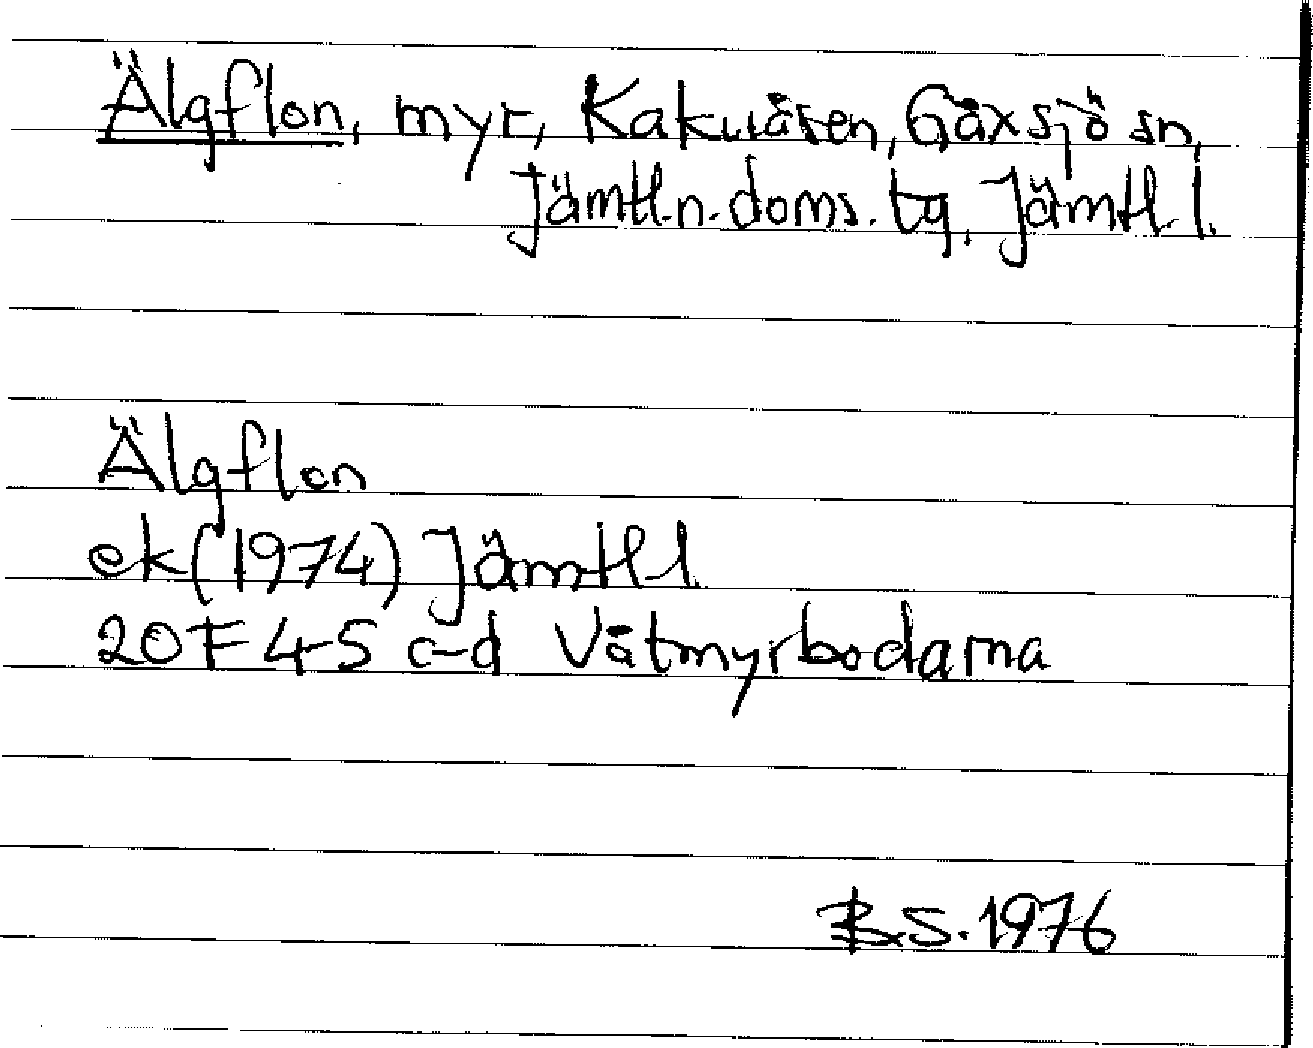 Älgflon, myr, Kakuåsen, Gåxsjö sn,
Jämtl.n.doms. tg, Jämtl. l.
Älgflon
ek (1974) Jämtl l.
20F 4-5 c-d Våtmyrbodarna
B.S. 1976